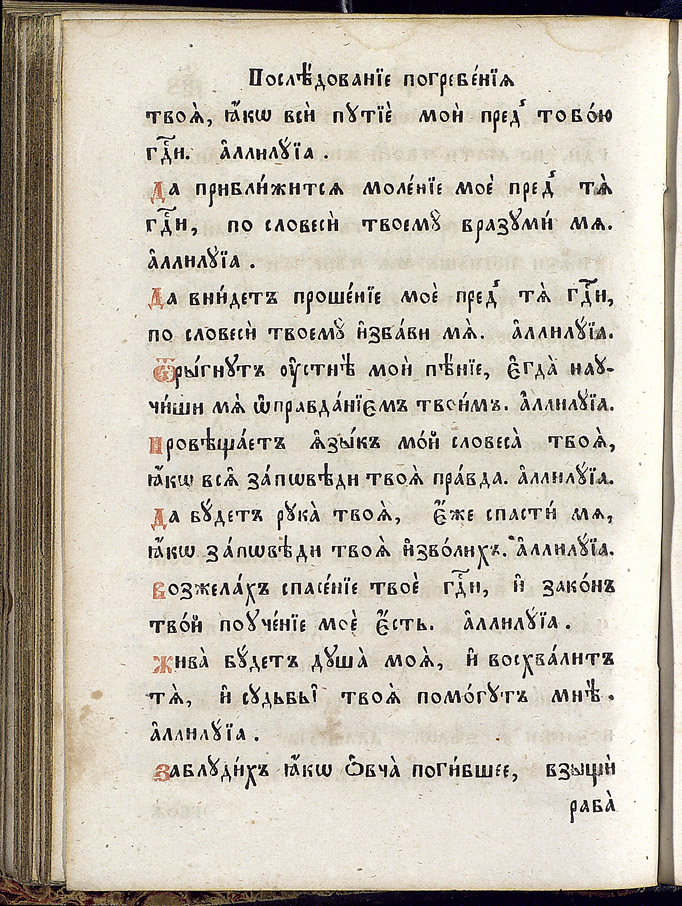 Послѣ́дованїе погребе́нїѧ
твоѧ̀, ꙗ҆́кѡ всѝ пꙋтїѐ моѝ пред̾ тобо́ю
гдⷭ҇и. а҆ллилꙋ́їа.
Да прибли́житсѧ моле́нїе моѐ пред̾ тѧ̀
гдⷭ҇и, по словесѝ твоемꙋ̀ вразꙋмѝ мѧ.
а҆ллилꙋ́їа.
Да вни́детъ проше́нїе моѐ пред̾ тѧ̀ гдⷭ҇и,
по словесѝ твоемꙋ̀ и҆зба́ви мѧ̀. а҆ллилꙋ́їа.
Ѿры́гнꙋтъ ѹ҆стнѣ̀ моѝ пѣ́нїе, є҆гда̀ наꙋ-
чи́ши мѧ̀ ѡ҆правда́нїємъ твои́мъ. а҆ллилꙋ́їа.
Провѣща́етъ ѧ҆зы́къ мо́й словеса̀ твоѧ̀,
ꙗ҆́кѡ всѧ̀ за́пѡвѣди твоѧ̀ пра́вда. а҆ллилꙋ́їа.
Да бꙋ́детъ рꙋка̀ твоѧ̀, є҆́же спастѝ мѧ,
ꙗ҆́кѡ за́пѡвѣди твоѧ̀ и҆зво́лихъ. а҆ллилꙋ́їа.
Возжела́хъ спасе́нїе твоѐ гдⷭ҇и, и҆ зако́нъ
тво́й поꙋче́нїе моѐ є҆́сть. а҆ллилꙋ́їа.
Жива̀ бꙋ́детъ дꙋша̀ моѧ̀, и҆ восхва́литъ
тѧ̀, и҆ сꙋдьбы̀ твоѧ̀ помо́гꙋтъ мнѣ̀.
а҆ллилꙋ́їа.
Заблꙋди́хъ ꙗ҆́кѡ ѻ҆вча̀ поги́бшее, взыщѝ
раба̀